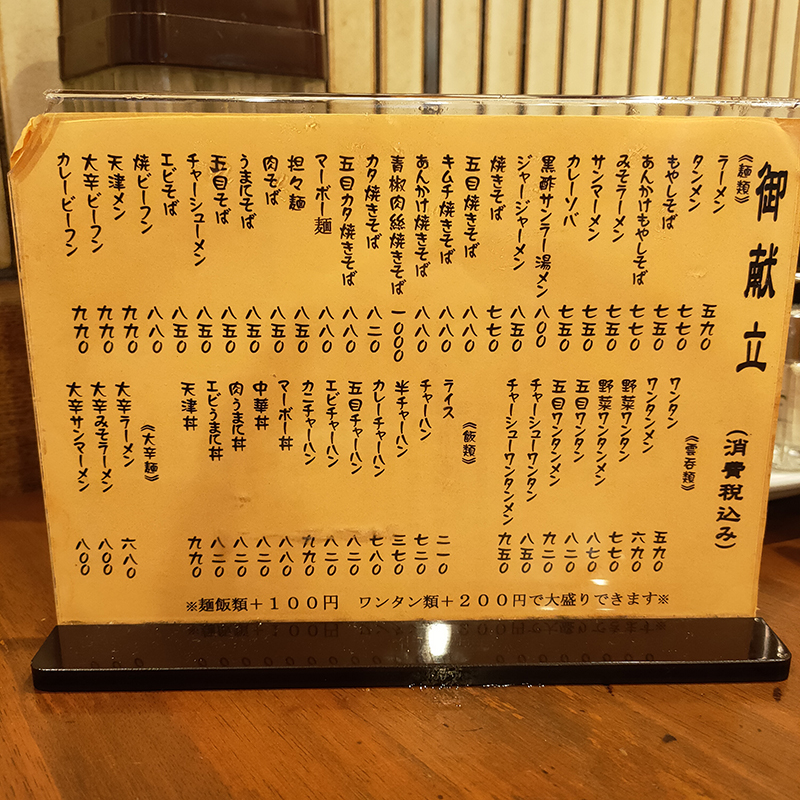 御献立
(消費税込み)
《麺類》
ラーメン 五九〇
タンメン 七七〇
もやしそば 七五〇
あんかけもやしそば 七七〇
みそラーメン 七五〇
サンマーメン 七五〇
カレーソバ 七五〇
黒酢サンラー湯メン 八〇〇
ジャージャーメン 八五〇
焼きそば 七七〇
五目焼きそば 八八〇
キムチ焼きそば 八八〇
あんかけ焼きそば 八八〇
青椒肉絲焼きそば 一〇〇〇
カタ焼きそば 八二〇
五目カタ焼きそば 八八〇
マーボー麺 八八〇
担々麺 八五〇
肉そば 八五〇
うまにそば 八五〇
五目そば 八五〇
チャーシューメン 八五〇
エビそば 八五〇
焼ビーフン 八八〇
天津メン 九九〇
大辛ビーフン 九九〇
カレービーフン 九九〇
《雲呑類》
ワンタン 五九〇
ワンタンメン 六九〇
野菜ワンタン 七七〇
野菜ワンタンメン 八七〇
五目ワンタン 八二〇
五目ワンタンメン 九二〇
チャーシューワンタン 八五〇
チャーシューワンタンメン 九五〇
《飯類》
ライス 二一〇
チャーハン 七二〇
半チャーハン 三七〇
カレーチャーハン 七八〇
五目チャーハン 八二〇
エビチャーハン 八二〇
カニチャーハン 九九〇
マーボー丼 八八〇
中華丼 八二〇
肉うまに丼 八二〇
エビうまに丼 八二〇
天津丼 九九〇
《大辛麺》
大辛ラーメン 六八〇
大辛みそラーメン 八〇〇
大辛サンマーメン 八〇〇
※麺飯類+100円 ワンタン類+200円で大盛りできます※